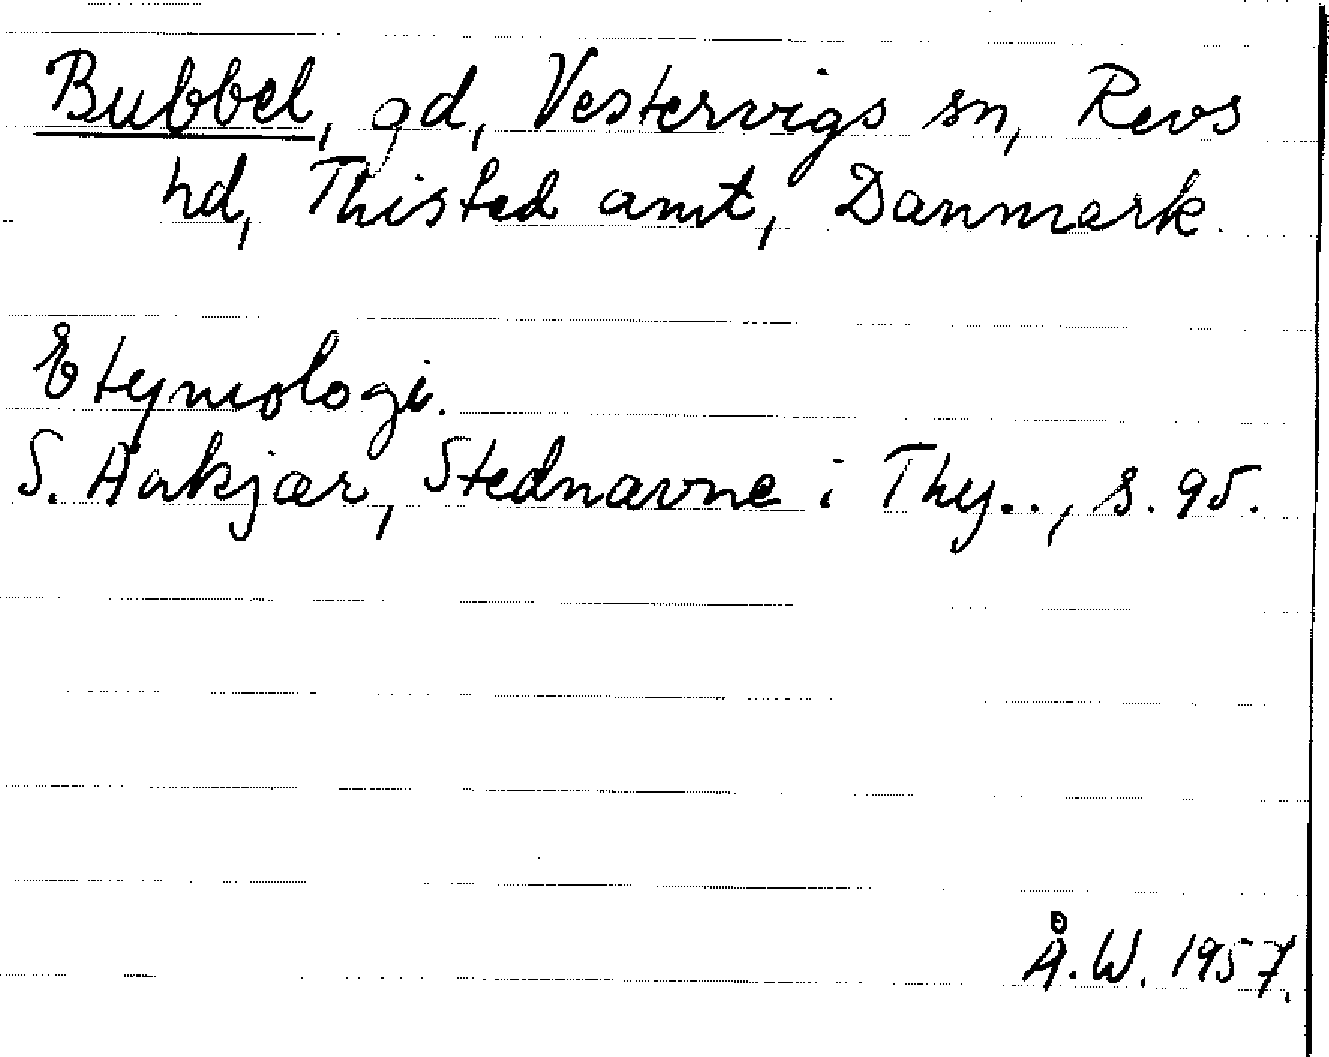 Bubbel, gd, Vestervigs sn, Revs
hd, Thisted amt, Danmark.
Etymologi.
S. Aakjær, Stednavne i Thy.., s. 95.
Å.W. 1957.